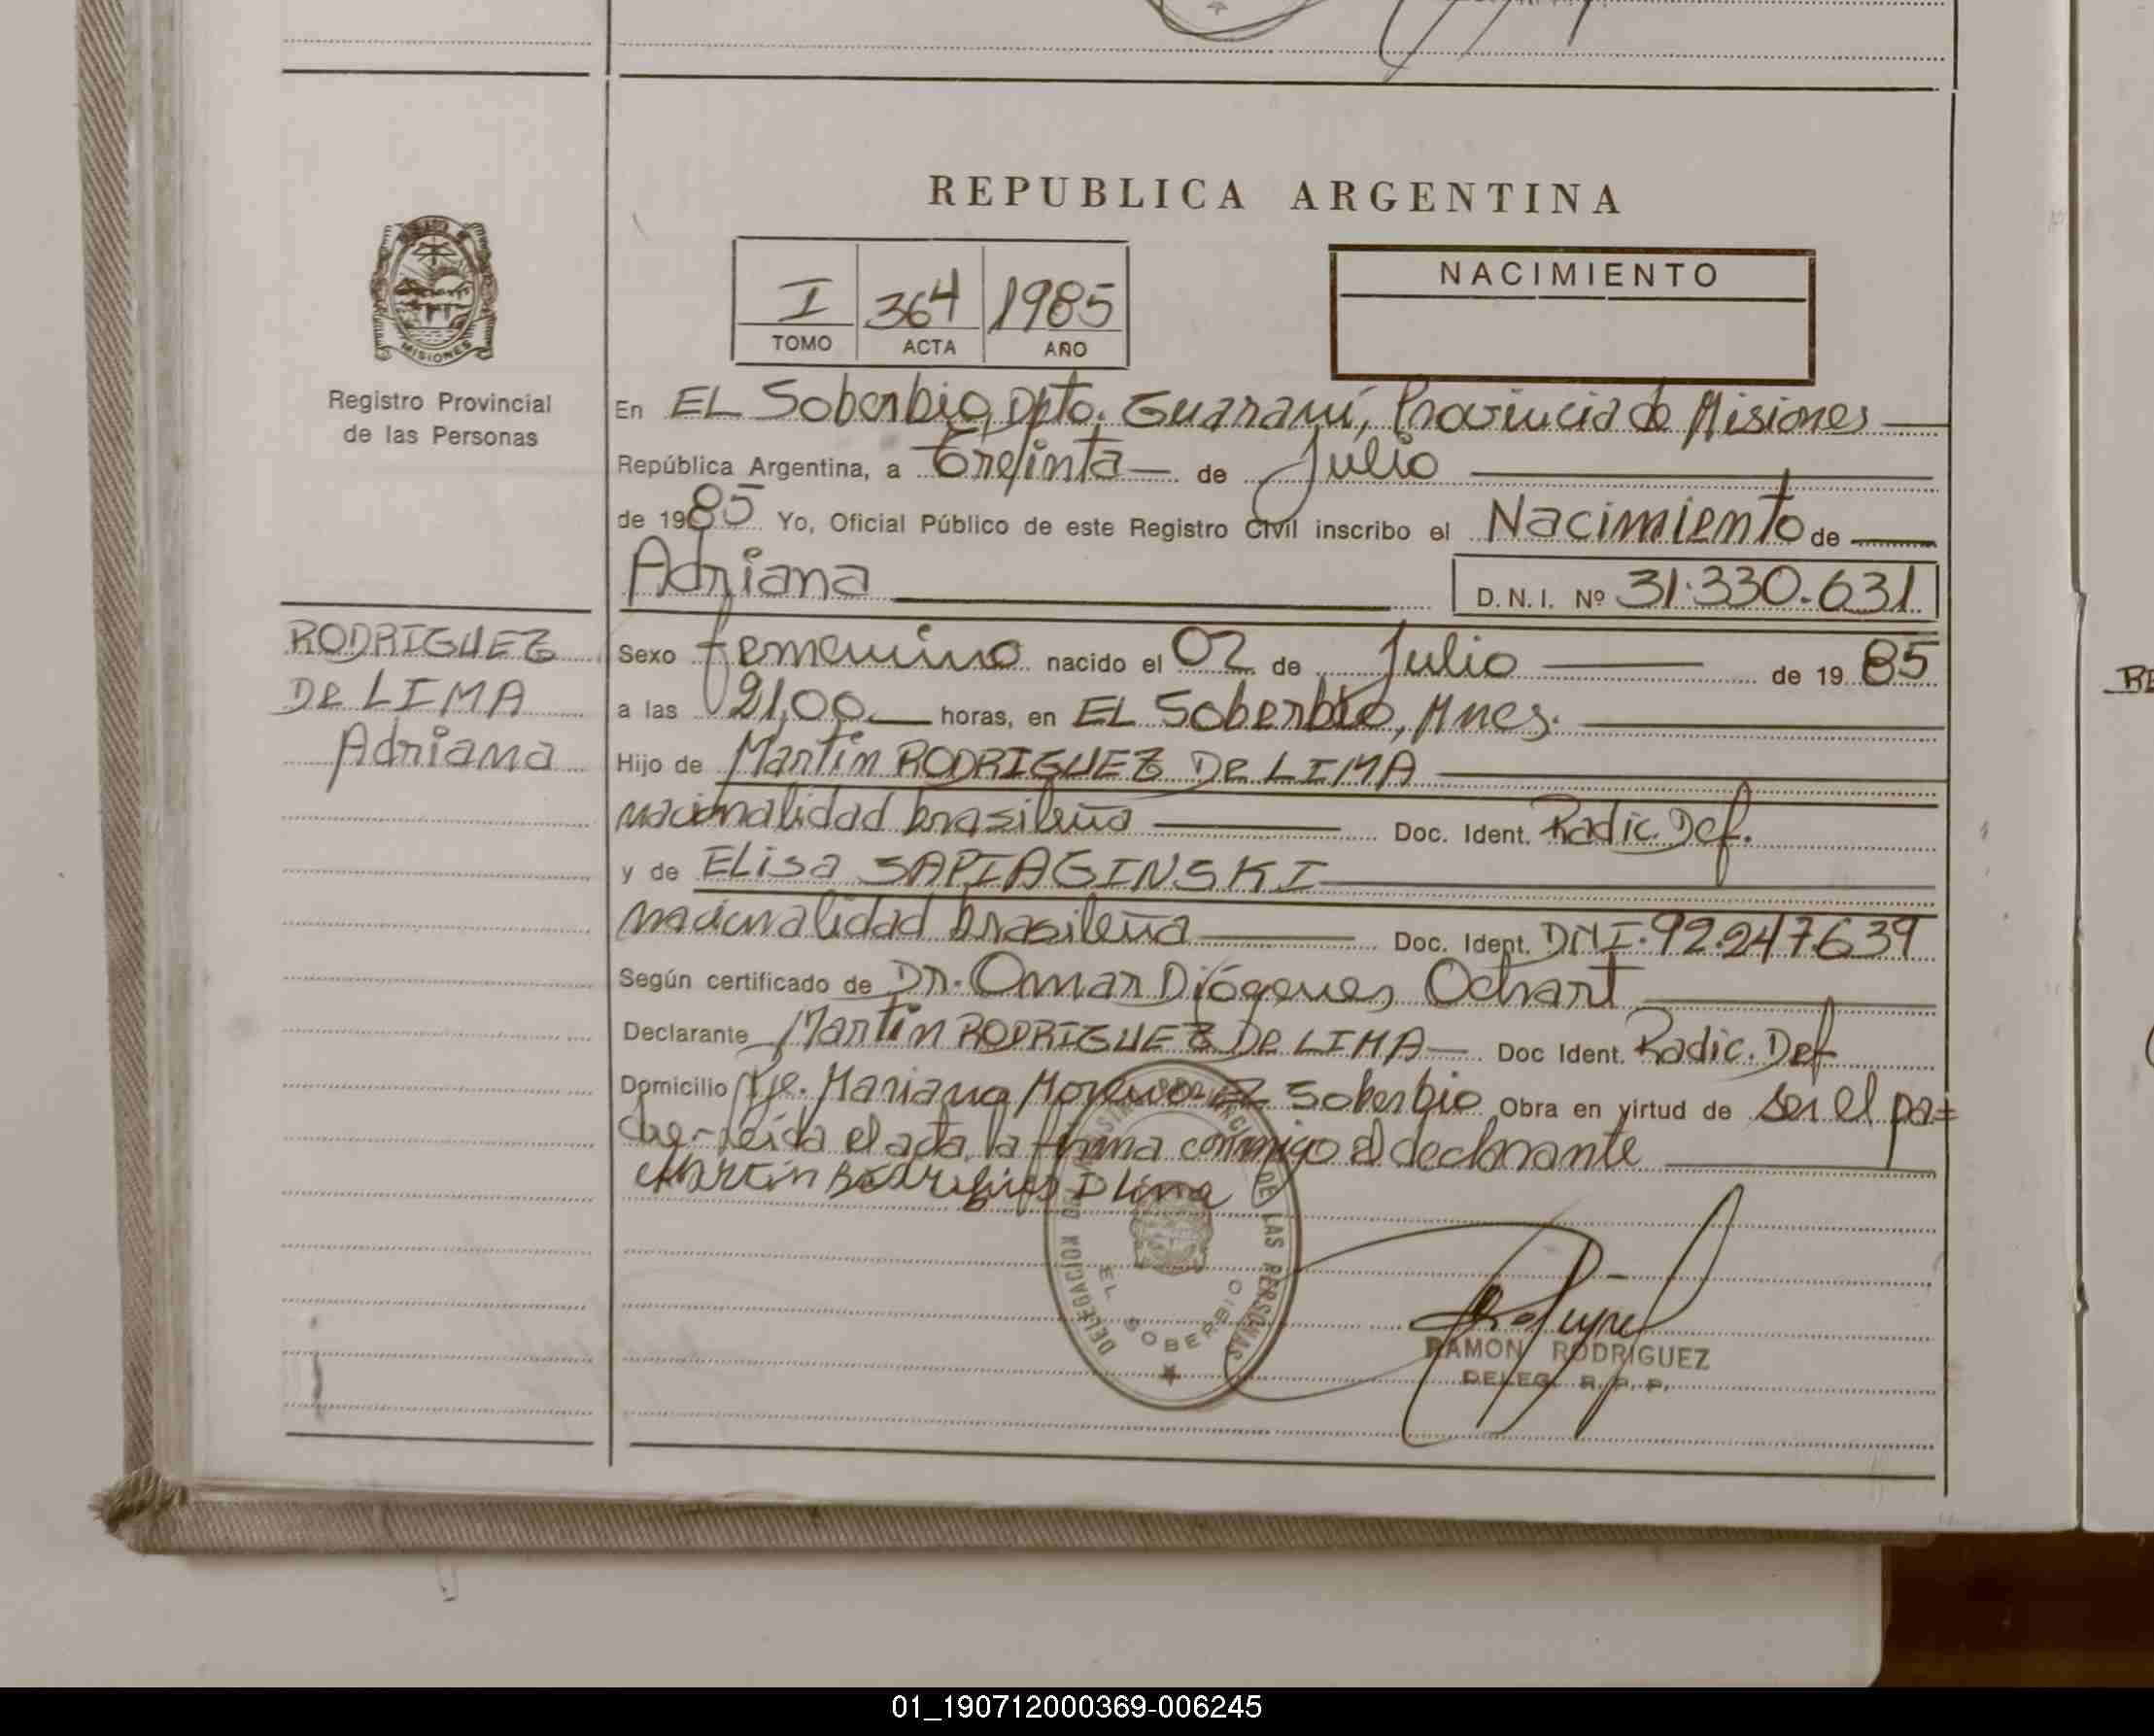 REPUBLICA ARGENTINA
NACIMIENTO
I 364 1985
TOMO ACTA AÑO
MISIONES
Registro Provincial
de las Personas
En EL Soberbio, Dpto. Guaraní, Provincia de Misiones
República Argentina, a Treinta de Julio
de 1985 Yo, Oficial Público de este Registro Civil inscribo el Nacimiento de
Adriana D.N.I. Nº 31.330.631
RODRIGUEZ
De LIMA
Adriana
Sexo femenino nacido el 02 de Julio de 1985
a las 21,00 horas, en EL Soberbio, Mnes.
Hijo de Martín RODRIGUEZ De LIMA
nacionalidad brasileña Doc. Ident. Radic. Def.
y de ELisa SAPIAGINSKI
nacionalidad brasileña Doc. Ident. DNI. 92.247.639
Según certificado de Dr. Omar Diógenes Ochart
Declarante Martín RODRIGUEZ De LIMA Doc Ident. Radic. Def
Domicilio Pje. Mariano Moreno - EL Soberbio Obra en virtud de ser el pa=
dre - leída el acta, la firma conmigo el declarante
DELEGACION DE LAS PERSONAS
EL SOBERBIO
RAMON RODRIGUEZ
DELEG. R. P. P.
01_190712000369-006245